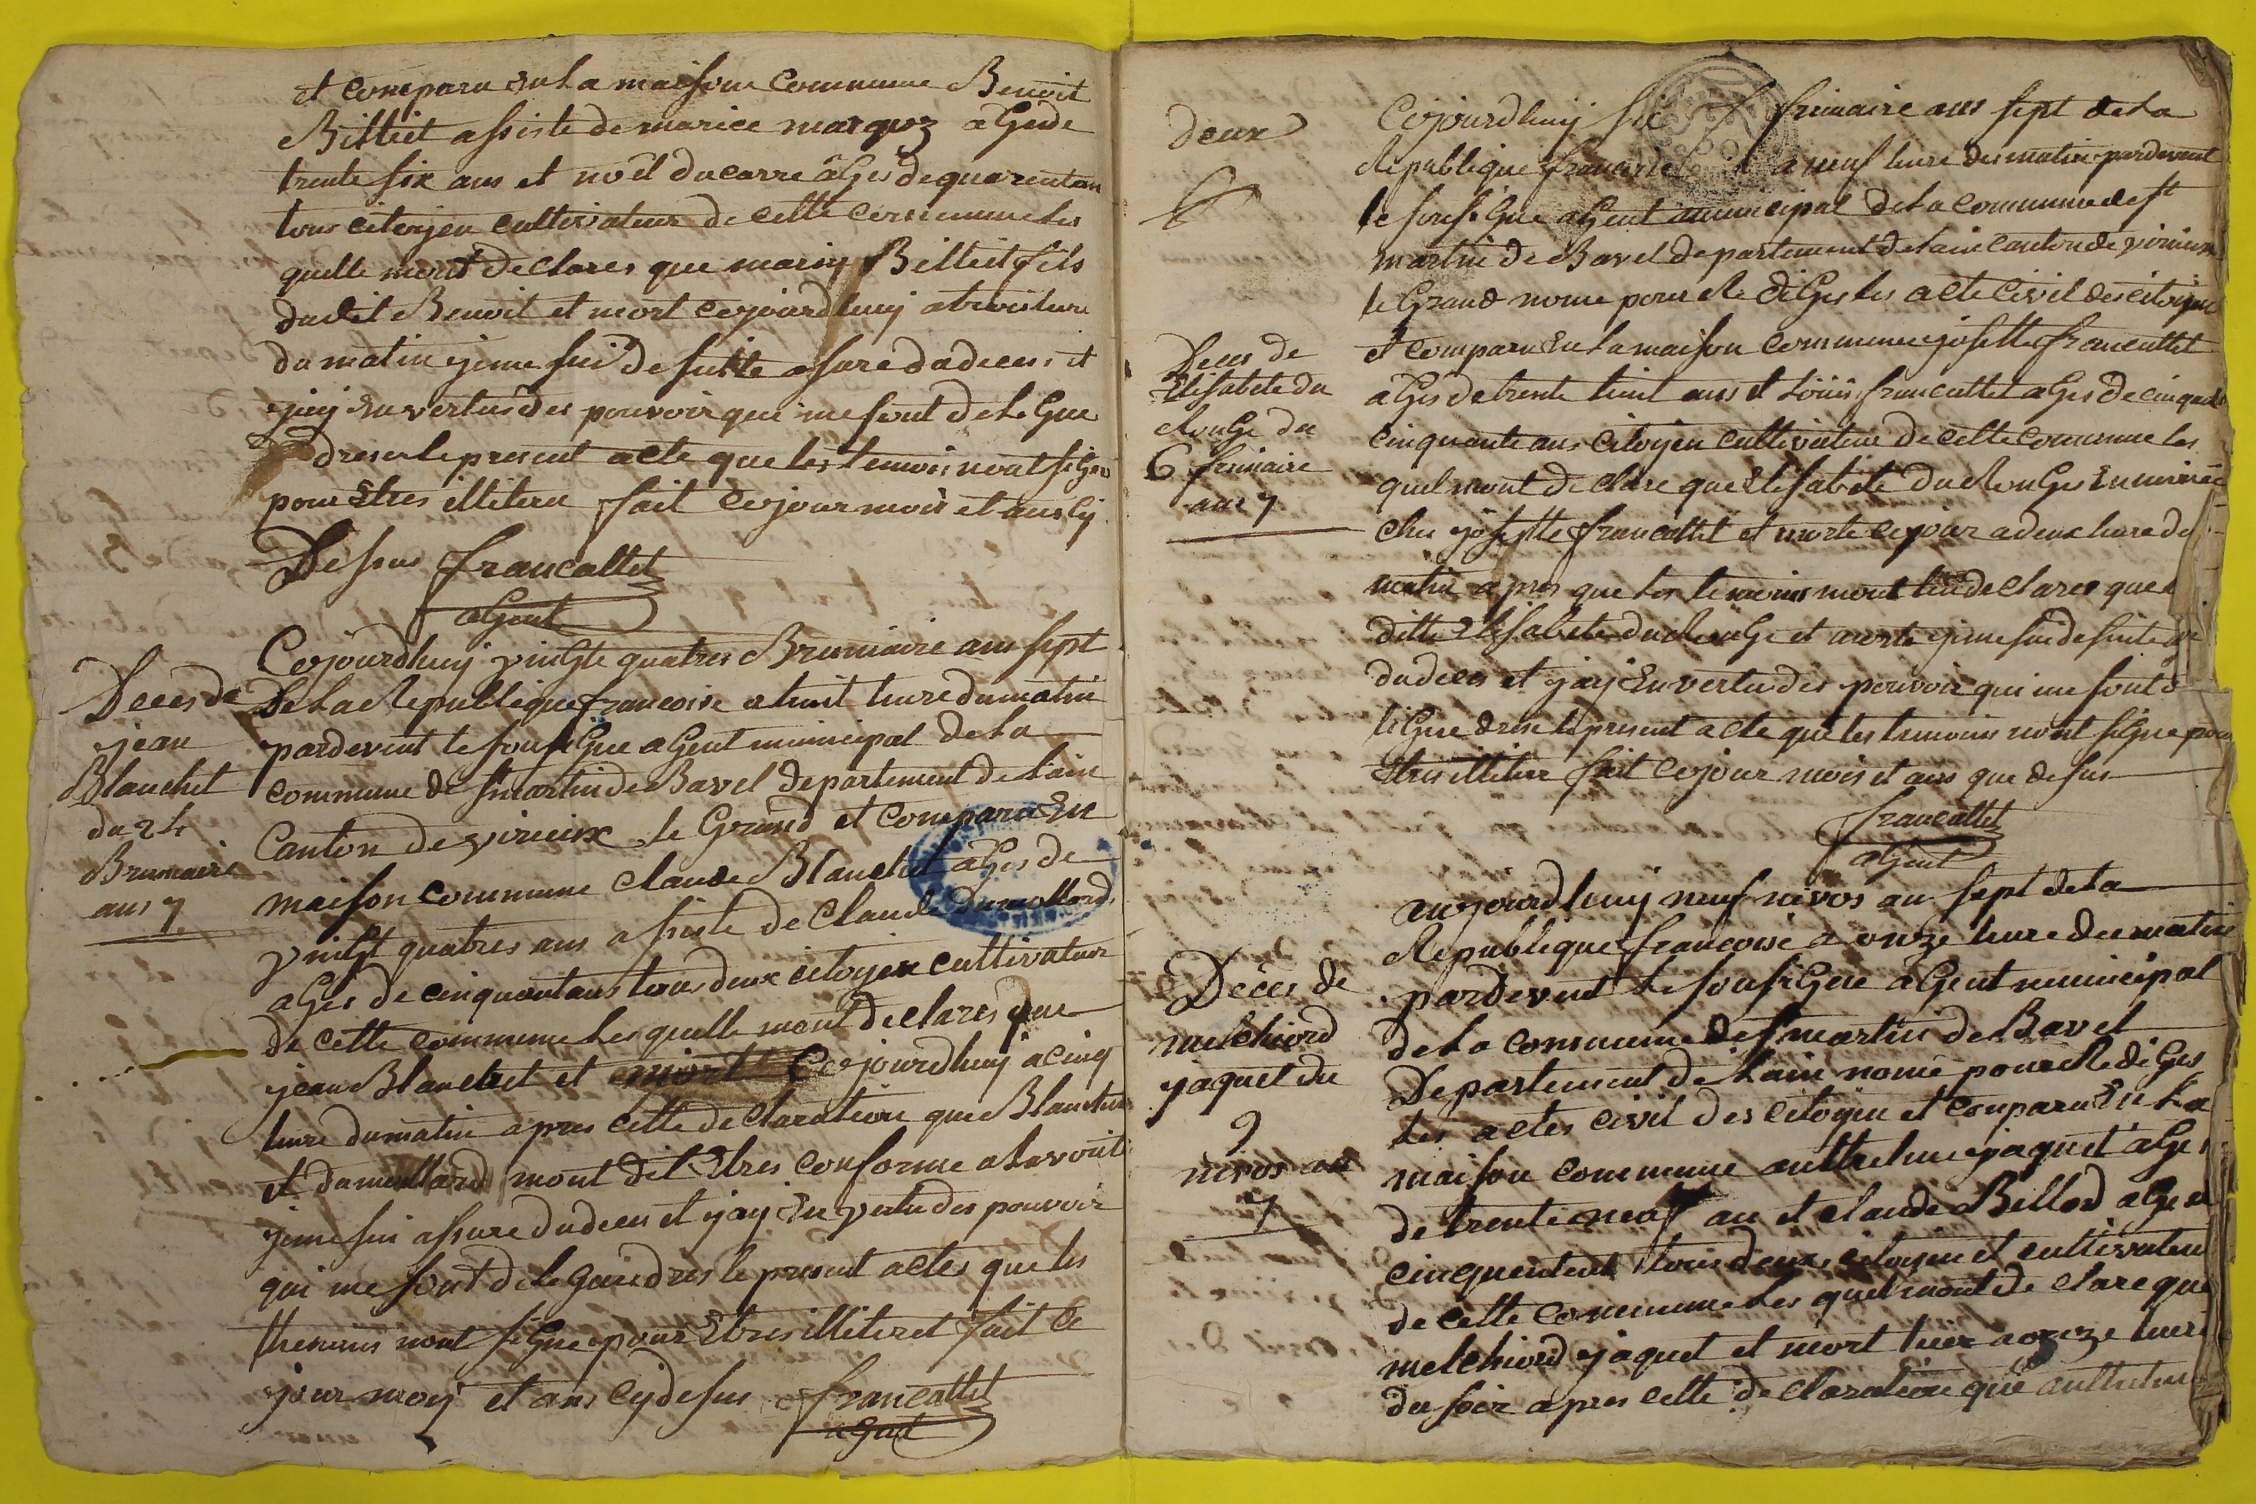 et comparu en la maison commune Benoit
Billiet assiste de marice marquoz a Gede
trente six ans et noêl ducarre âGes de quarentan
tous citoyen cultivateur de cette commune les
quelle mont declares que Billiet fils
dudit Benoit et mort cejourdhuy a trois hure
du matin je me sui de suitte asure du deces et
jay en vertus des pouvoir qui me sont deleGue
dreser le present acte que les temoin nont siGne
pour Etres illiteru fait ce jour mois et ans cy
Desus francallet
aGent
Deces de
jean
Blanchet
du 24
Brumaire
ans 7
Cejourdhuy vinGte quatres Brumaire ans sept
de la Republique francoise a huit hure du matin
pardevent le sousiGne aGent municipal de la
commune de st martin de Bavel departement de lain
Canton de virieux le Grand et comparu En
maison commune claude Blanchet aGes de
vinGt quatres ans assiste de claude Dumollard
aGes de cinquantans tous deux citoyen cultivateur
de cette commune les quelle mont declares que
jean Blanchet et mort Cejourdhuy a cinq
hure du matin apres cette declaration que Blanchet
et dumollard mont dit Etres conforme a la verite
je me sui assure du deces et jay En vertu des pouvoir
qui me sont deleGue dres le present actes que les
themoins nont siGne pour Etres illiteret fait le
jour moy et ans cy desus francallet
aGent
deux
Cejourdhuy six frimaire ans sept de la
Republique francoise a neuf hure du matin pardevent
le sousiGne aGent municipal de la commune de st
martin de Bavel departement de lain canton de virieux
le Grand nome pour RediGes les acte civil des citoyen
et comparu En la maison commune josette francallet
aGes de trente huit ans et Louis francallet aGes de cinquante
cinquante ans citoyen cultivateur de cette commune les
quel mont declare que Elisabete du RouGe
ches josette francallet et morte ce jour a deux hure de
matin apres que les temoins mont declares que
ditte Elisabete du RouGe et morte je me sui de suite
du deces et jay En vertu des pouvoir qui me sont
leGue drese le present acte que les temoins nont siGne pour
Etres illiteru fait ce jour mois et ans que desus
francallet
aGent
Deces de
Elisabete du
RouGe du
6 frimaire
ans 7
aujourdhuy neuf nivos an sept de la
Republique francoise a onze hure du matin
pardevent le sousiGne aGent municipal
de la commune de st martin de Bavel
Departement de lain nomé pour RediGes
les actes civil des citoyen et comparu En la
maison commune anthelme jaquet aGes
de trente neuf an et claude Billod aGe de
cinquentent tous deux citoyen et cultivateur
de cette commune les quel mont declare que
melchiord jaquet et mort hier a onze hure
du soir apres cette declaration que anthelme
Déces de
melchiord
jaquet du
9
nivos an
7